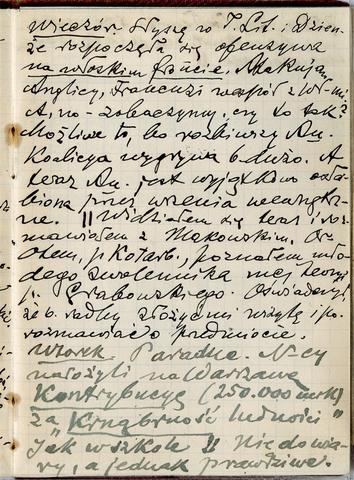 Wieczór. Słyszę w T. Lit. i Dzien.
że rozpoczęła się ofenzywa
na włoskim froncie. Atakują
Anglicy, Francuzi wespół z Wł-mi
A, no - zobaczymy, czy to tak
Możliwe to, bo rozbiwszy Au.
Koalicja wygrywa b. dużo. A
teraz Au. jest wyjątkowo osła-
biona przez wrzenia wewnętrz-
ne. || Widziałem się teraz i roz-
mawiałem z Makowskim.
p. Kotarb., poznałem mło-
dego zwolennika mej teorji
p. Grabowskiego. Oświadczył,
że b. radby złożyć mi wizytę i po-
rozmawiać o przedmiocie.
Wtorek Paradne. N-cy
nałożyli na Warszawę
Kontrybucję (250.000 mrk)
za "Krnąbrność ludności"
Jak w szkole !! Nie do wia-
ry, a jednak prawdziwe.